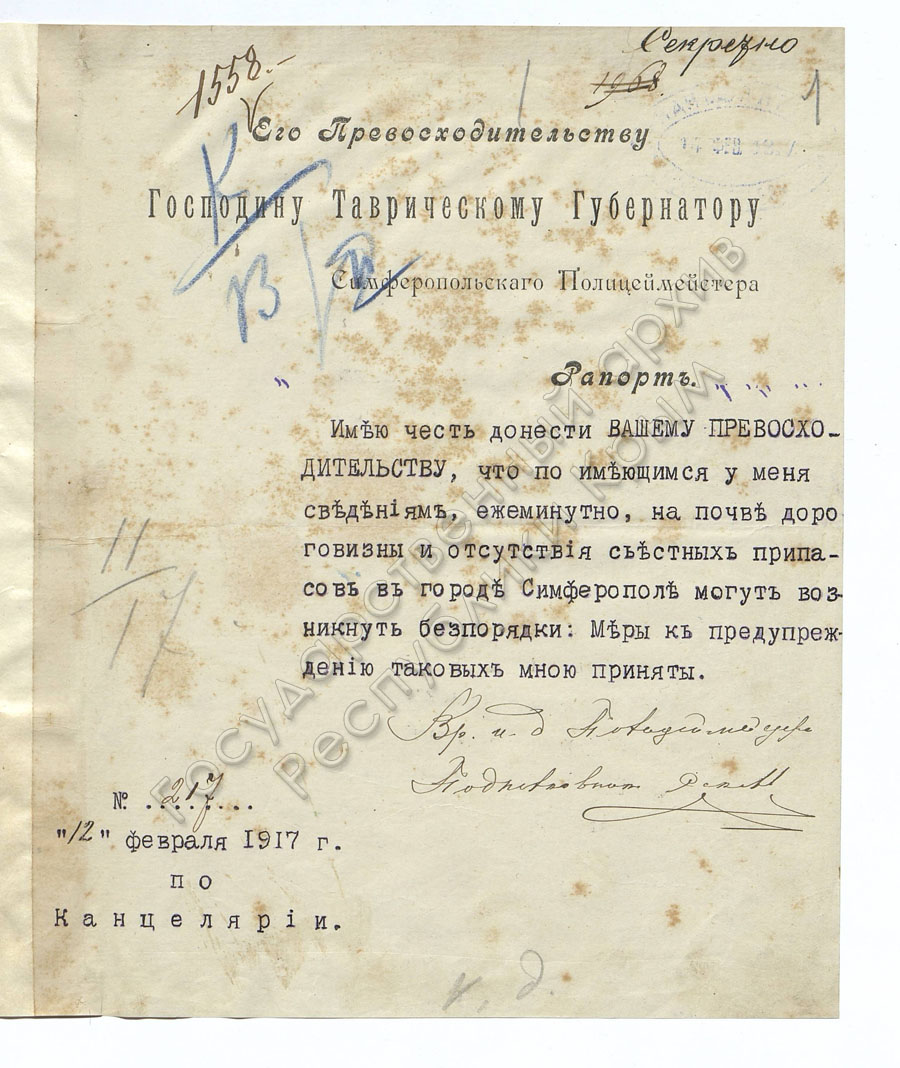 Секретно
1558.-
1968.
1
14 ФЕВ. 1917
Его Превосходительству
Господину Таврическому Губернатору
Симферопольскаго Полицеймейстера
Рапортъ.
Имѣю честь донести ВАШЕМУ ПРЕВОСХО-
ДИТЕЛЬСТВУ, что по имѣющимся у меня
свѣдѣніямъ, ежеминутно, на почвѣ доро
говизны и отсутствія сьѣстныхъ припа-
совъ въ городѣ Симферополѣ могутъ воз-
никнуть безпорядки: Мѣры къ предупреж-
денію таковыхъ мною приняты.
11
17
Вр. и. д Полицеймейстера
Подполковникъ
№ ..217...
"12" февраля 1917 г.
по
Канцеляріи.
Государственный архив
Республики Крым